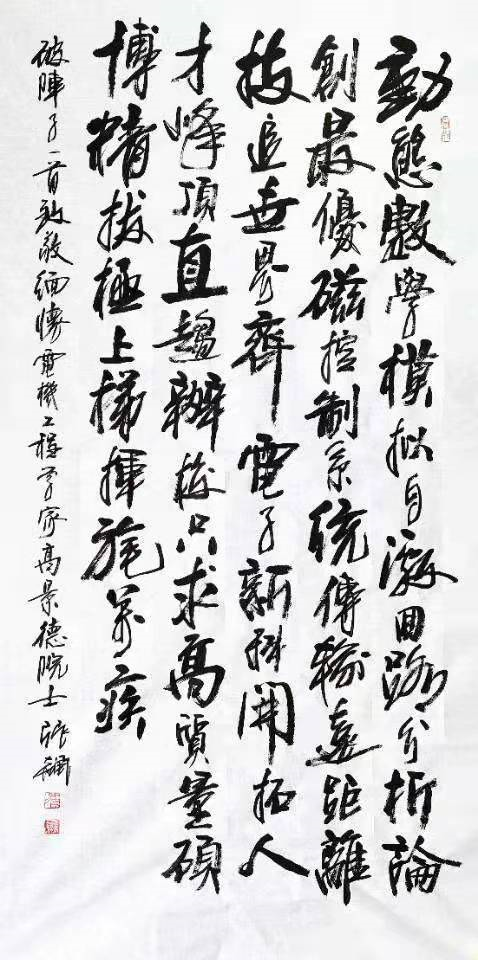 動態數學模拟自激回路分析論
創最優磁控制系統傳輸遠距離
技追世界齊電子新科開拓人
才峰頂直趨辦校只求高質量碩
博精拔極上梯揮旄萬疾
破陣子一首致敬緬懷電機工程學家高景德院士